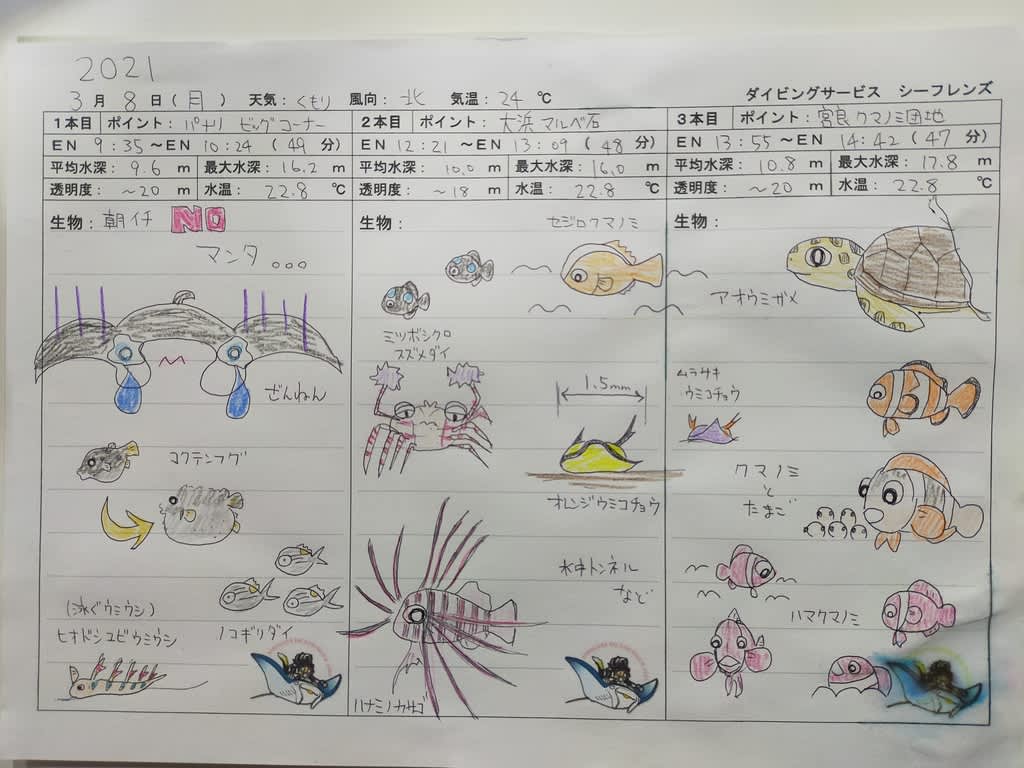 2021
3月 8日(月) 天気:くもり 風向:北 気温:24℃ ダイビングサービス シーフレンズ
1本目 ポイント:パナリ ビッグコーナー
EN 9:35～EN 10:24(49分)
平均水深:9.6m 最大水深:16.2m
透明度:～20m 水温:22.8℃
生物:朝イチ NO
マンタ。。。
ざんねん
コクテンフグ
(泳ぐウミウシ)
ヒオドシユビウミウシ
ノコギリダイ
2本目 ポイント:大浜マルベ石
EN 12:21～EN 13:09(48分)
平均水深:10.0m 最大水深:16.0m
透明度:～18m 水温:22.8℃
生物:
セジロクマノミ
ミツボシクロ
スズメダイ
1.5mm
オレンジウミコチョウ
水中トンネル
など
ハナミノカサゴ
3本目 ポイント:宮良クマノミ団地
EN 13:55～EN 14:42(47分)
平均水深:10.8m 最大水深:17.8m
透明度:～20m 水温:22.8℃
生物:
アオウミガメ
ムラサキ
ウミコチョウ
クマノミ
と
たまご
ハマクマノミ